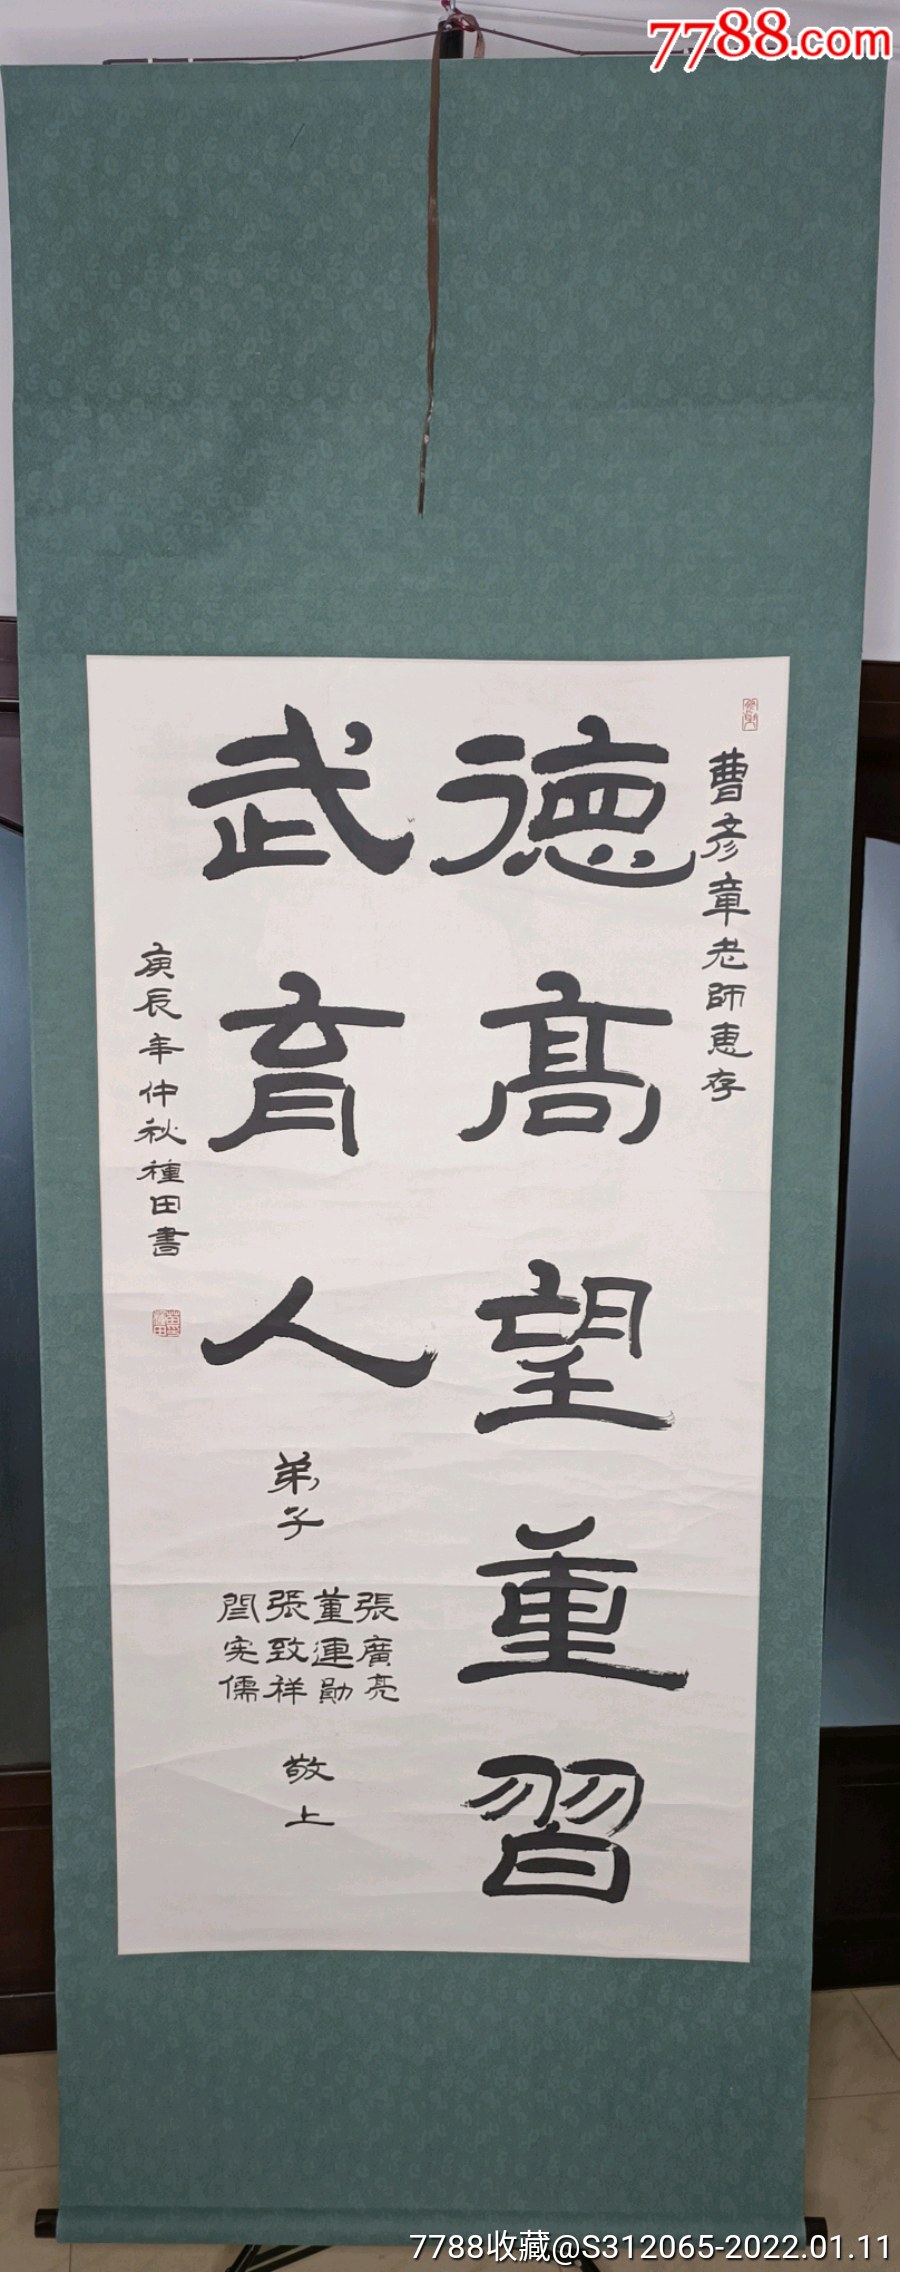 7788.com
曹彥章老師惠存
德高望重習
武育人
弟子
張廣亮
董連勛
張致祥
閆宪儒
敬上
庚辰年仲秋種田書
7788收藏@S312065-2022.01.11